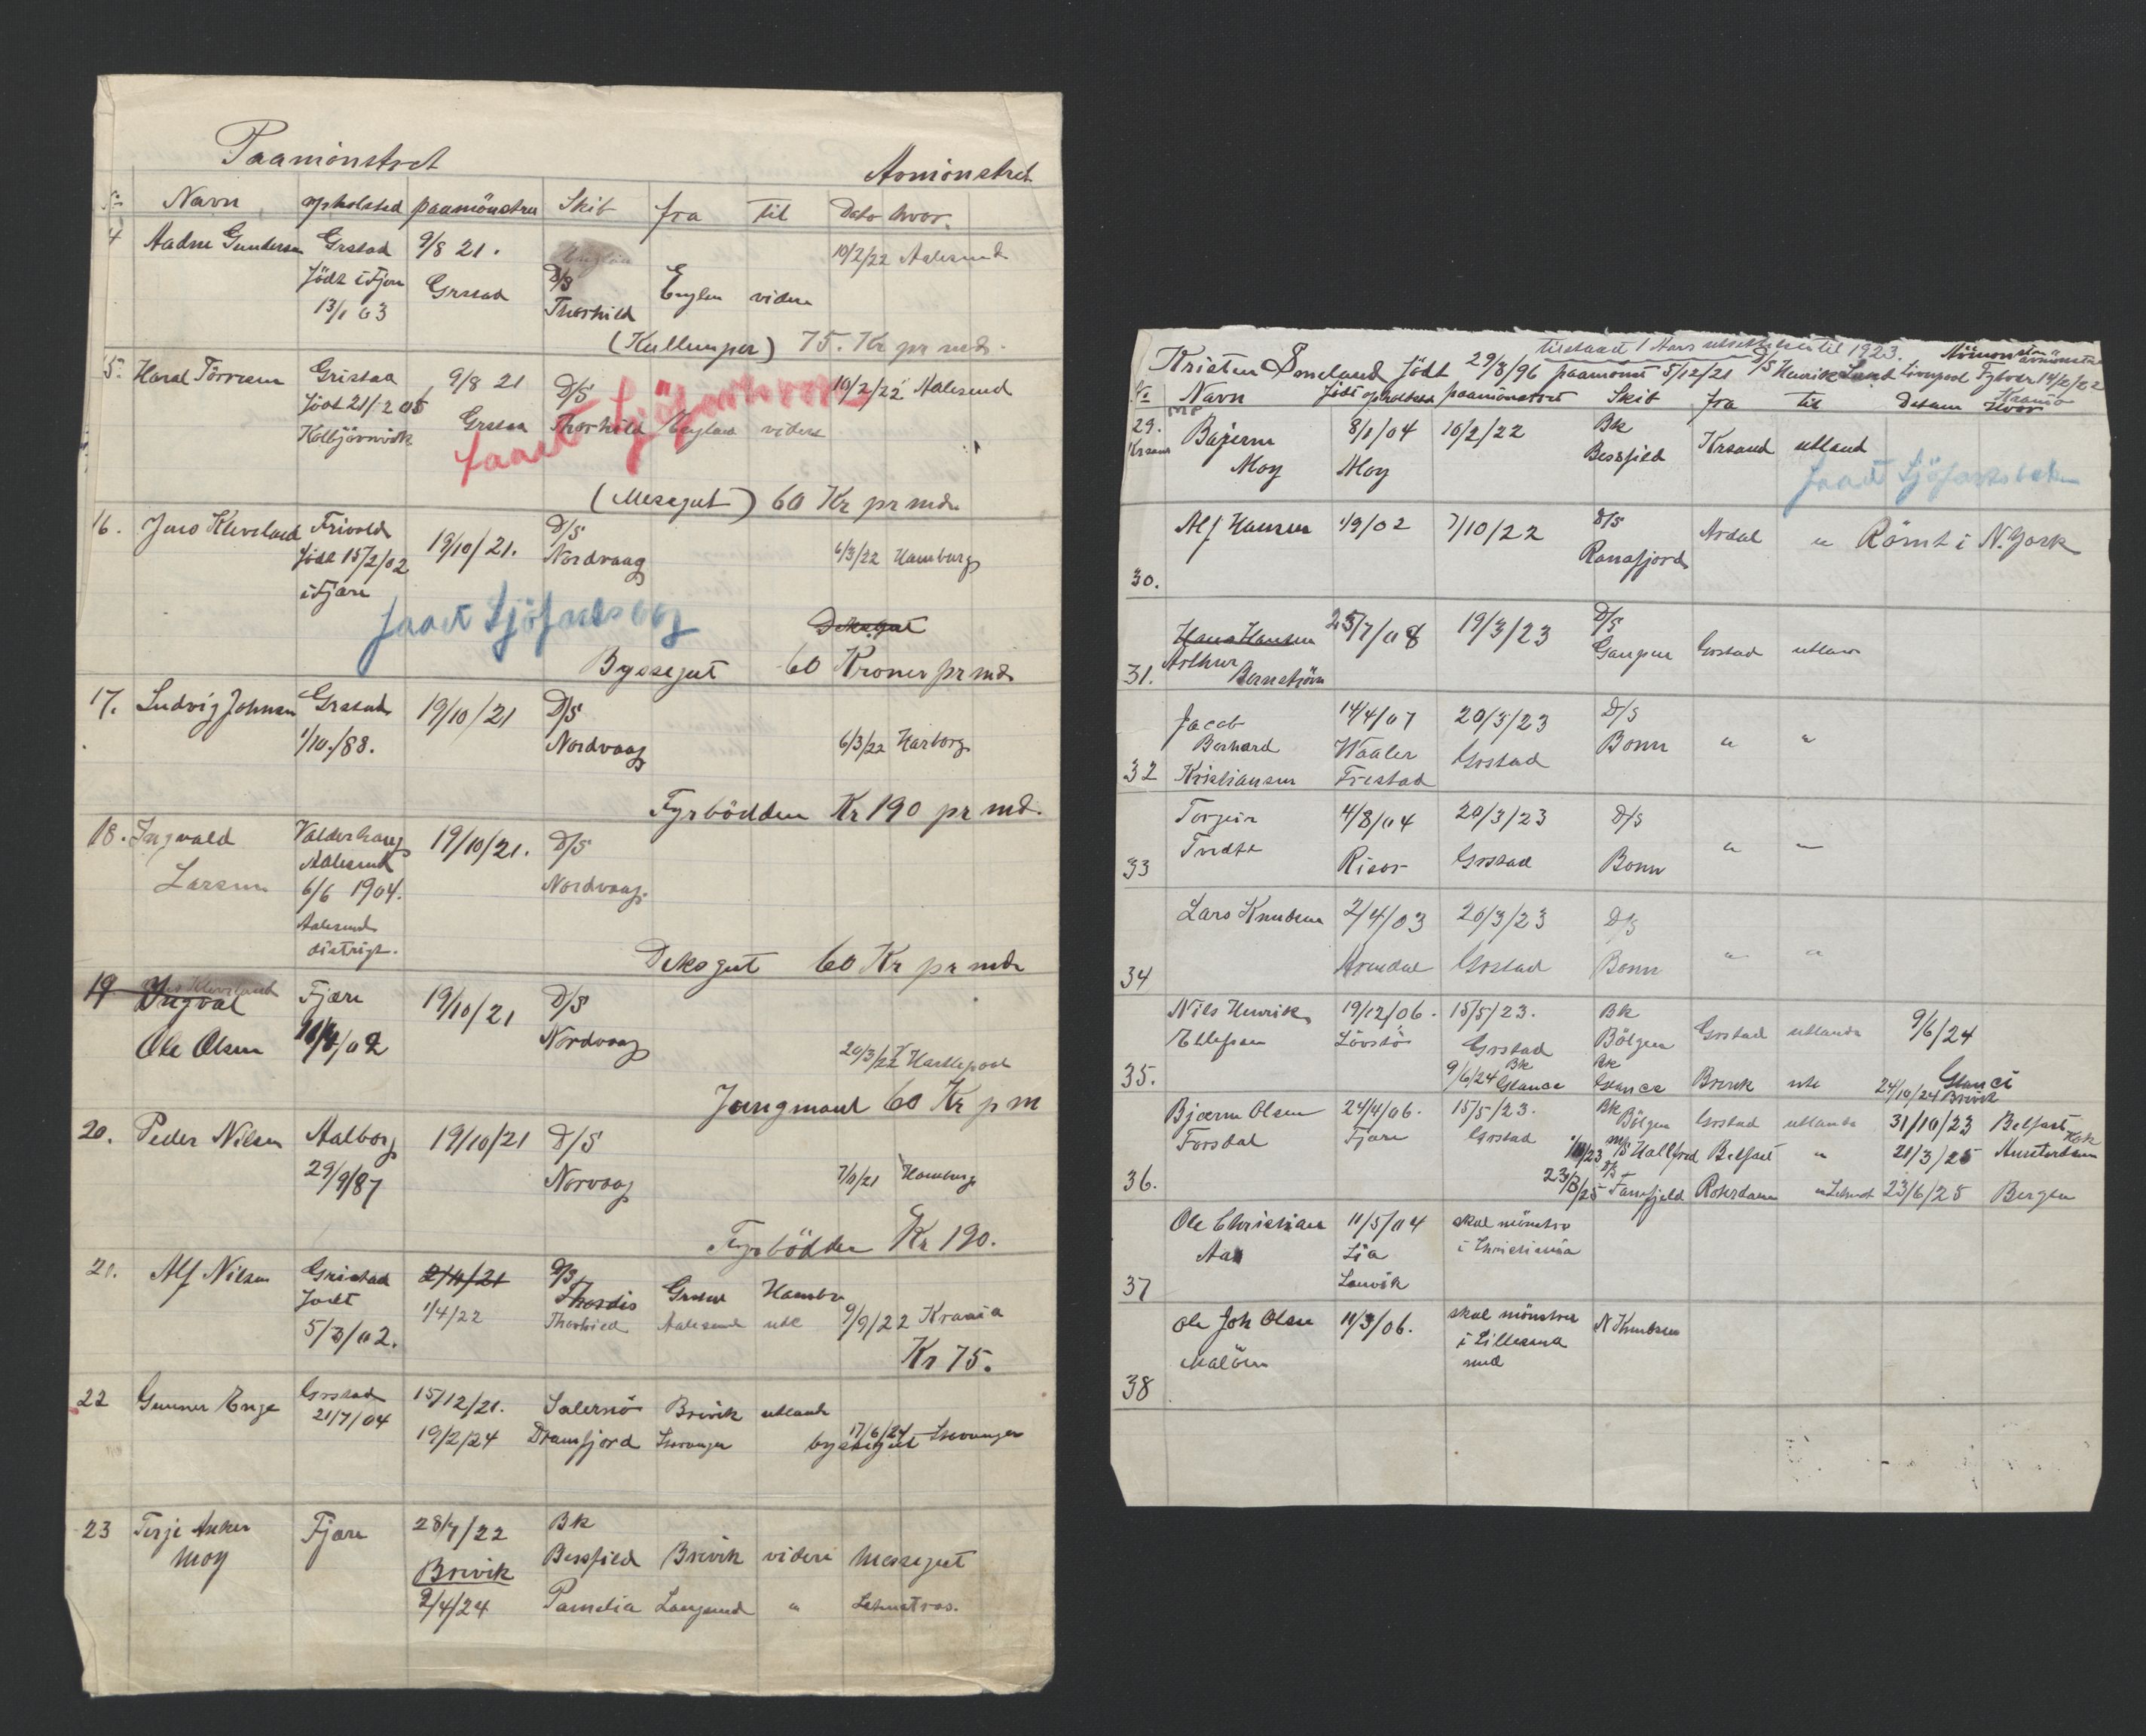 Paamönstret
Avmönstret
No Navn opholsted paamönstre Skib fra til Dato hvor.
4 Aadne Gundersen Grstad 9/8 21. 10/2/22 Aalesund
födt i Fjere Grstad D/S Englan videre
13/1 03 Thorhild
(Kullemper) 75. Kr pr md.
15. Haral Törresen Gristaa 9/8 21 D/S 10/2/22 Aalesund
födt 21/-2 05 Grstaa Thorhild England videre
Kolbjörnsvik
faaet Sjöfartsbog
(Messegut) 60 Kr pr md.
16. Jens Kleveland Frivold 19/10/21. D/S
födt 15/2/02 Nordvaag 6/3/22 Hamburg
i Fjære
faaet Sjöfartsbog
Deksgut
Byssegut 60 Kroner pr md.
17. Ludvig Johnsen Grstad 19/10/21 D/S
1/10./88. Nordvaag 6/3/22 Harborg
Fyrbödder Kr 190 pr md.
18. Ingvald Valderhaug 19/10/21. D/S
Larsen Aalesund
6/6 1904. Nordvaag.
Aalesund
distrigt.
Deksgut 60 Kr pr md
19 Ingval Fjære 19/10/21 D/S
Ole Olsen /02 Nordvaag
20/3/22 Hartlepool
Jungmand 60 Kr p m
20. Peder Nilsen Aalborg 19/10/21 D/S
29/9/87 Norvaag 7/11/21 Hamburg
Fyrbödder Kr 190.
21. Alf Nilsen Gristad 2/11/21 D/S Thordis Grstad Hambu
födt 1/4/22 Thorhild Aalesund utl 9/9/22 Krania
5/3/02.
Kr 75.
22 Gunner Enge Grstad 15/12/21. Salersiö Brevik utlande
21/7/04 19/2/24 Dramfjord Stavanger byssegut 17/6/24 Stavanger
23 Terje Anker Fjære 28/7/22 BK
Moy Brevik Bessfield Brevik videre Messegut
2/4/24 Pamelia Langesund " Letmatros.
tilstaaet 1 Aars utsettelse til 1923.
Kristen Smeland födt 29/8/96 paamönst 5/12/21 D/S Henrik Lund Liverpool Fyrböder 14/2/22
Avmönstre
No Navn födt opholdsted paamönstret Skib fra til Datum Hvor
29. Krsand Bajerne 8/1/04 10/2/22 Bk Krsand utland
Moy Moy Bessfield
faaet Sjöfartsboken
30. Alf Hansen 1/9/02 7/10/22 D/S Ranafjord Ardal " Römt i N. York
31. Hans Hansen 25/7/08 19/3/23 D/S Gaupen Grstad utlan
Arthur Bernström
32 Jacob 14/4/07 20/3/23 D/S
Berhard Waaler Grstad Bonn " "
Kristiansen Frestad
33 Torgeir 4/8/04 20/3/23 D/S
Tredte Risör Grstad Bonn " "
34 Lars Knudsen 2/4/03 20/3/23 D/S
Arendal Grstad Bonn " "
35. Nils Henrik 19/12/06. 15/5/23. Bk
Ellefsen Lövstö Grstad Bölgen Grstad utlande 9/6/24
9/6/24 Bk Glance Bk Glance Brevik utl 24/10/24 Brevik
36. Bjarne Olsen 24/4/06. 15/5/23. Bk Bölgen Grstad utlande 31/10/23 Belfast
Forsdal Fjære Grstad M/S Hallfred Belfast " 21/3/25 Amsterdam
23/3/25 Tansfjeld Roterdam 23/6/25 Bergen
37 Ole Christian 11/5/04 skal mönstre
Aas Lia i Christiania
Lauvik
38 Ole Joh Olsen 11/3/06. skal mönstre N Knudsen
Malöen i Lillesand
med